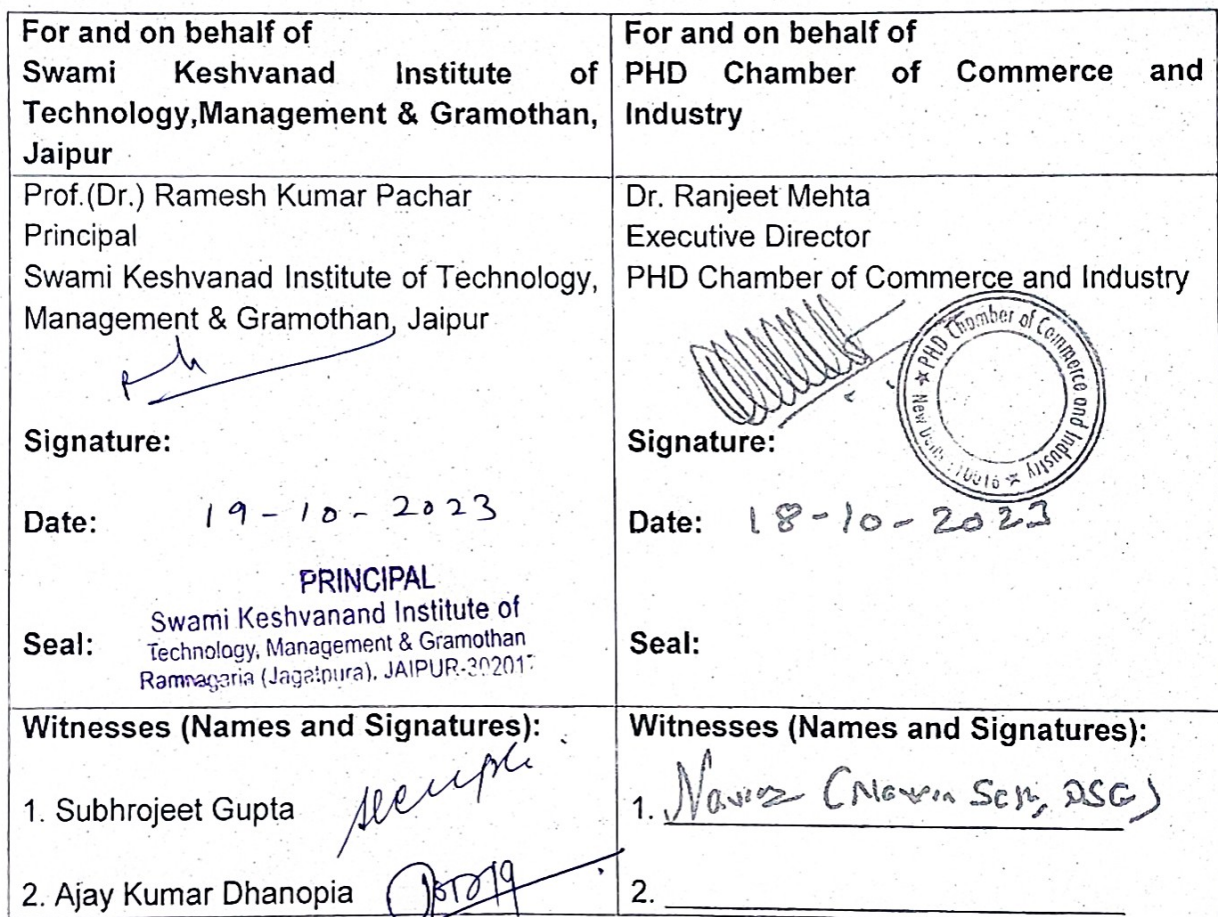 For and on behalf of
Swami Keshvanad Institute of
Technology,Management & Gramothan,
Jaipur
For and on behalf of
PHD Chamber of Commerce and
Industry
Prof.(Dr.) Ramesh Kumar Pachar
Principal
Swami Keshvanad Institute of Technology,
Management & Gramothan, Jaipur
Signature:
Date: 19-10-2023
PRINCIPAL
Swami Keshvanand Institute of
Seal: Technology, Management & Gramothan
Ramnagaria (Jagatpura), JAIPUR-
Dr. Ranjeet Mehta
Executive Director
PHD Chamber of Commerce and Industry
PHD Chamber of Commerce and Industry
New Delhi
Signature:
Date: 18-10-2023
Seal:
Witnesses (Names and Signatures):
1. Subhrojeet Gupta
2. Ajay Kumar Dhanopia
Witnesses (Names and Signatures):
1.
2.